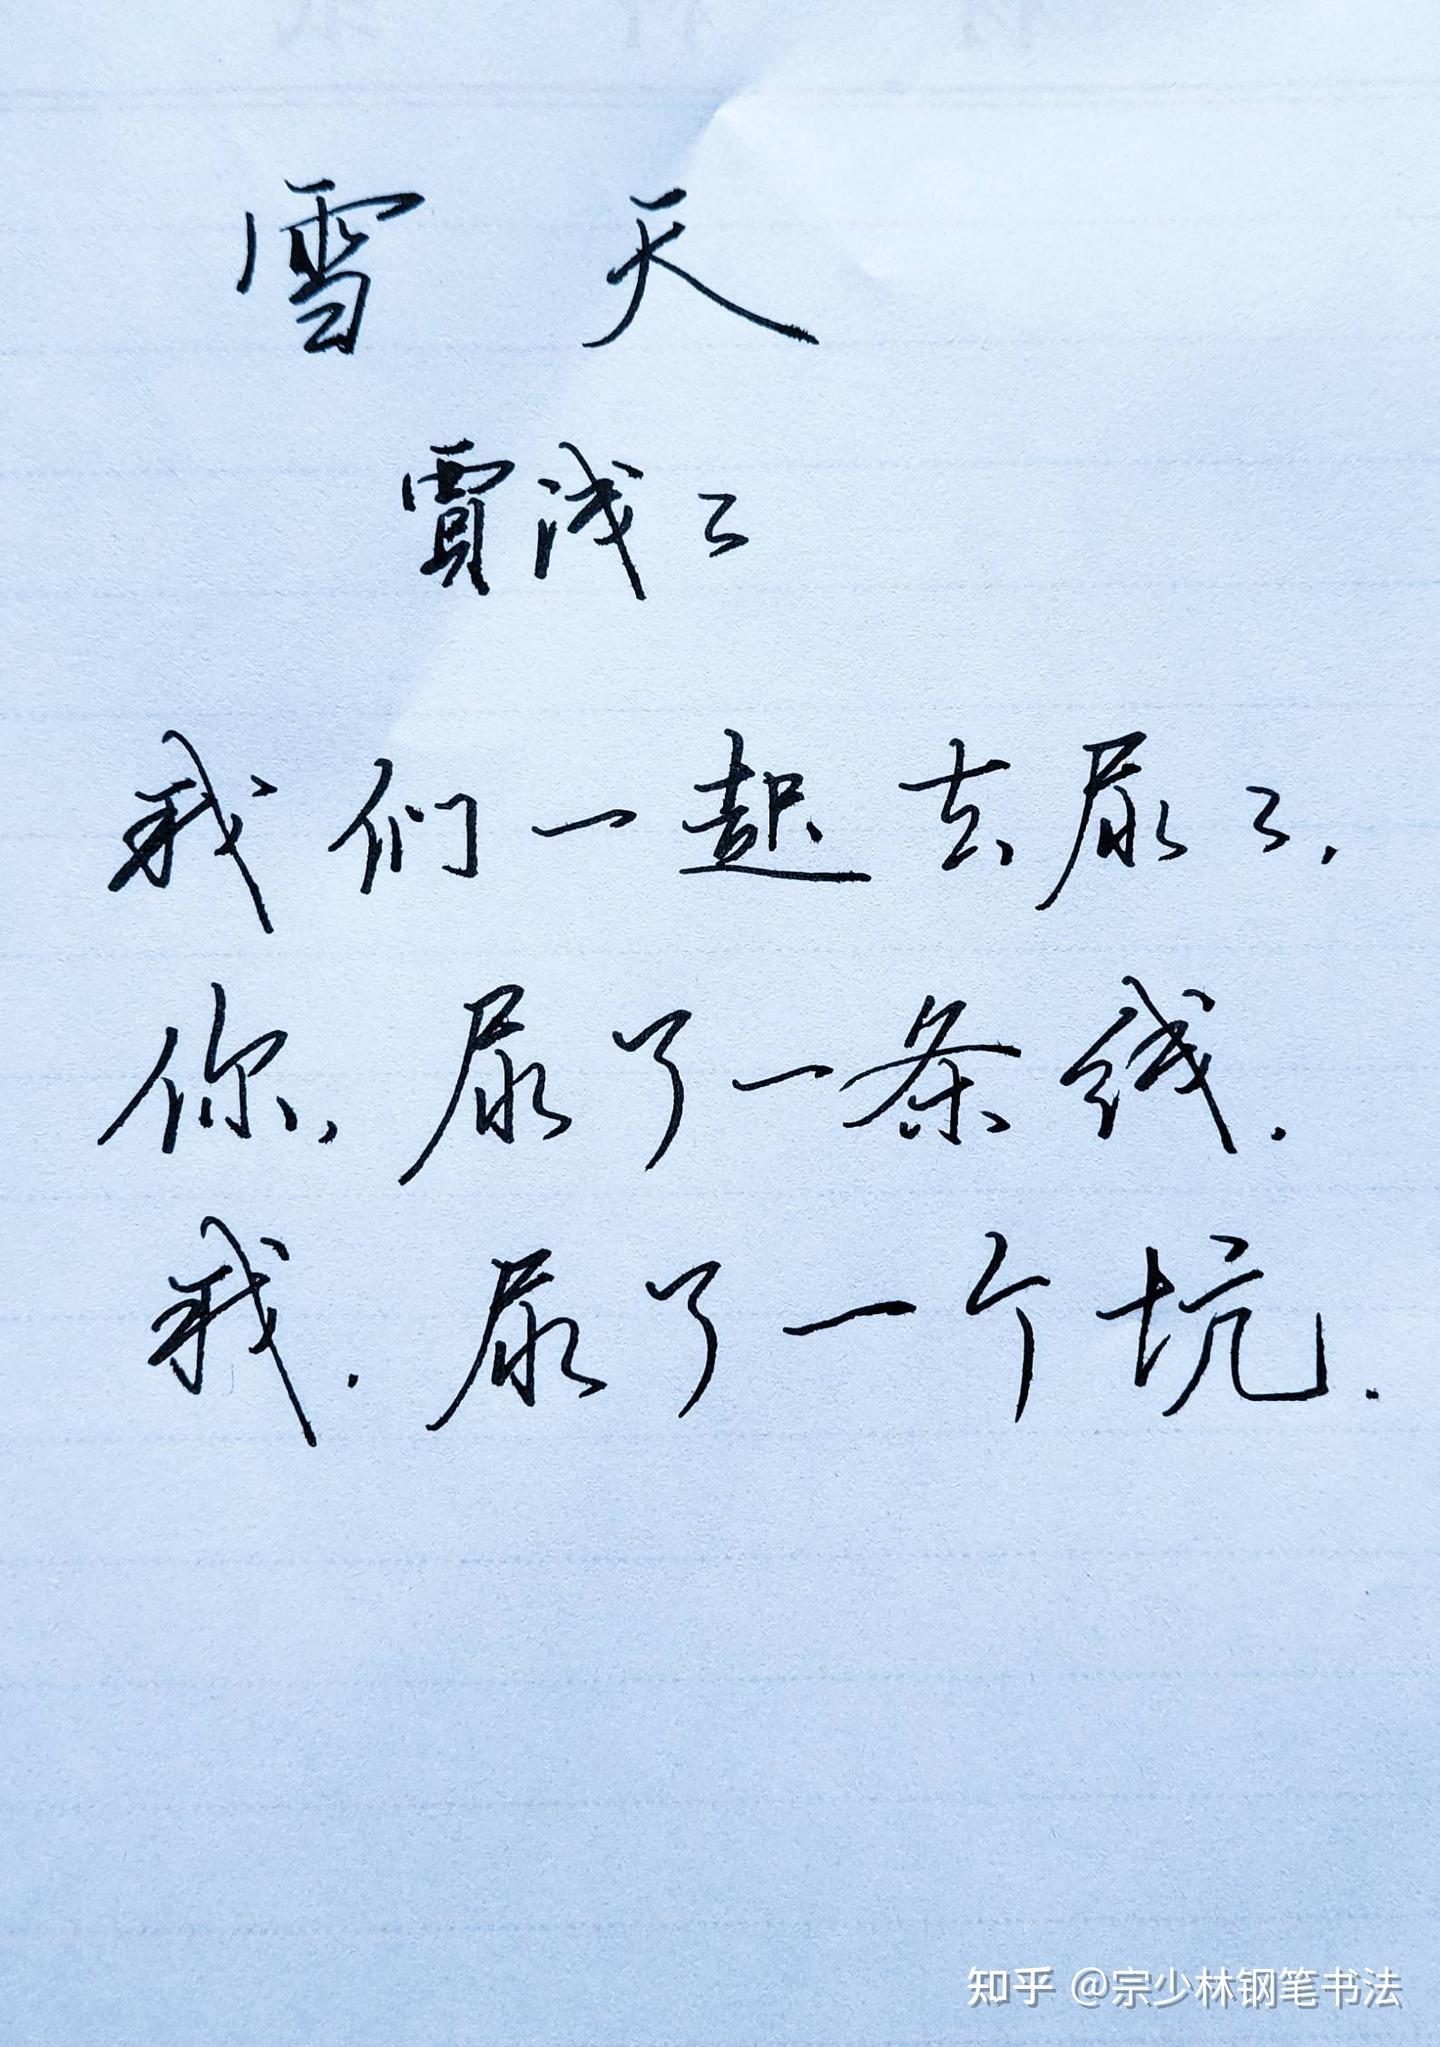 雪天
賈浅々
我们一起去尿尿,
你,尿了一条线.
我.尿了一个坑.
知乎 @宗少林钢笔书法